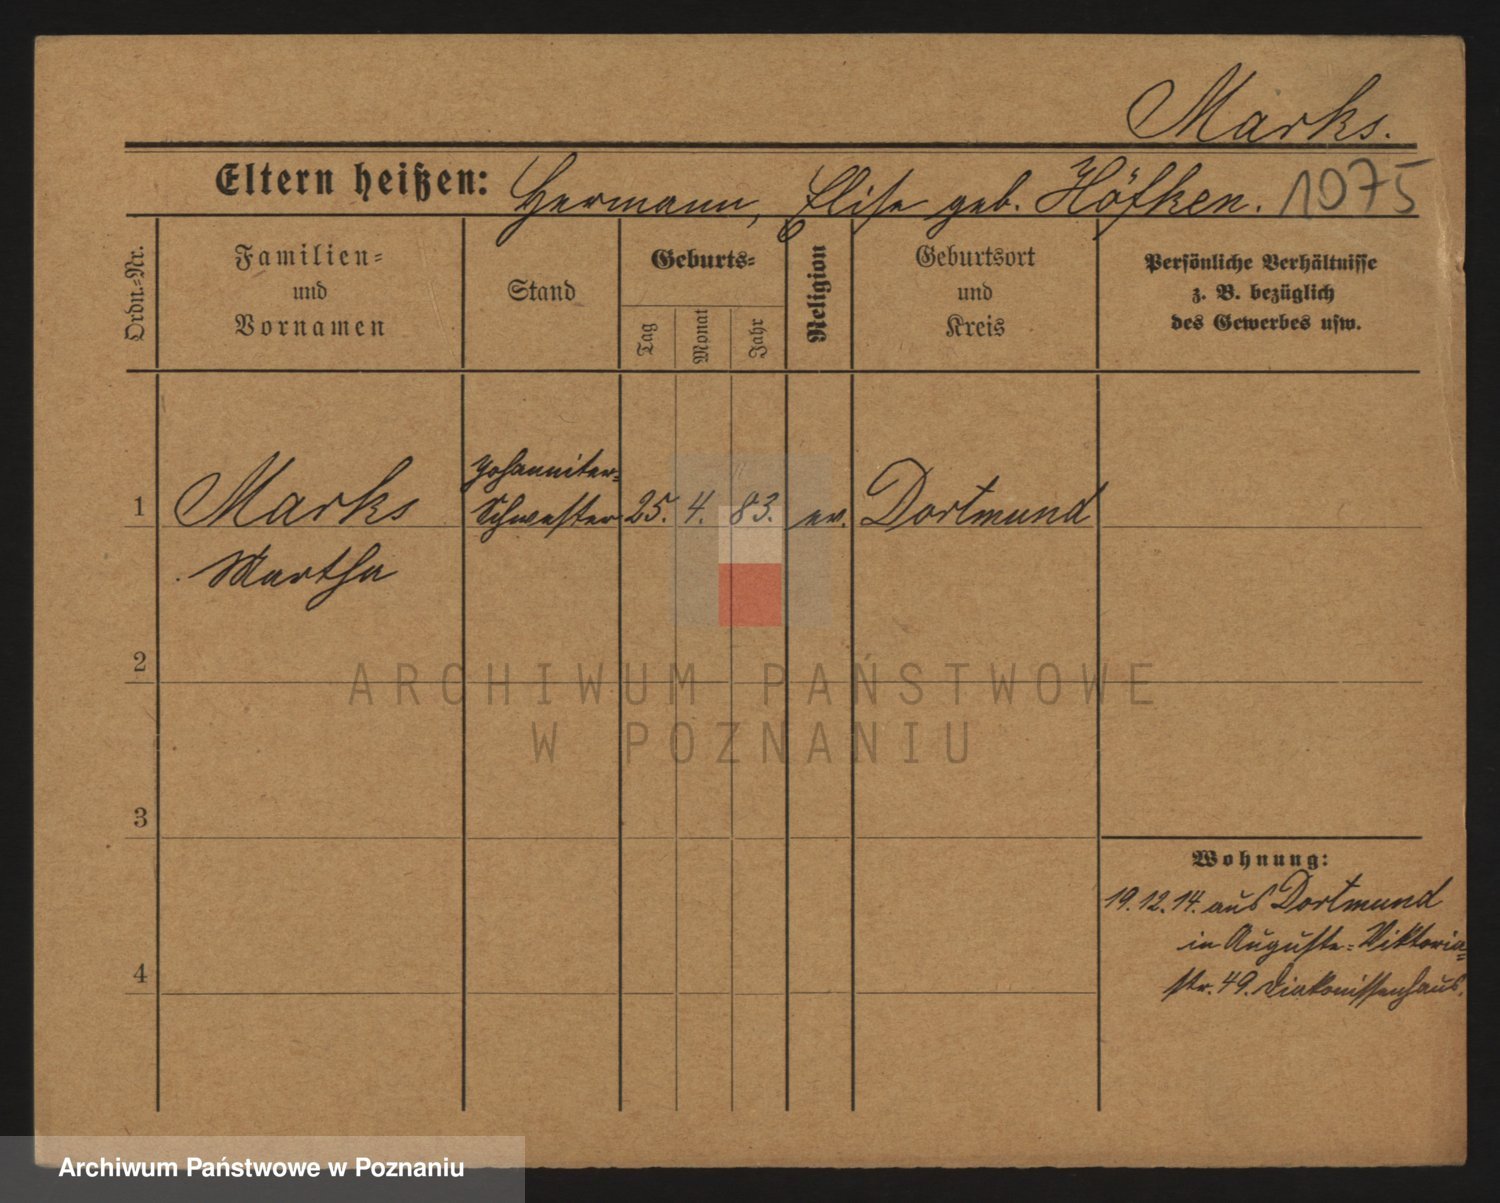 Marks.
Eltern heißen: Hermann, Elise geb. Höfken. 1075
Ordn.-Nr.
Familien-
und
Vornamen
Stand
Geburts-
Tag
Monat
Jahr
Religion
Geburtsort
und
Kreis
Persönliche Verhältnisse
z. B. bezüglich
des Gewerbes usw.
Johanniter-
1 Marks Schwester 25. 4. 83. ev. Dortmund
Martha
2
ARCHIWUM PAŃSTWOWE
W POZNANIU
3
Wohnung:
19.12.14. aus Dortmund
in Auguste-Viktoria-
4
str. 49. Diakonissenhaus.
Archiwum Państwowe w Poznaniu